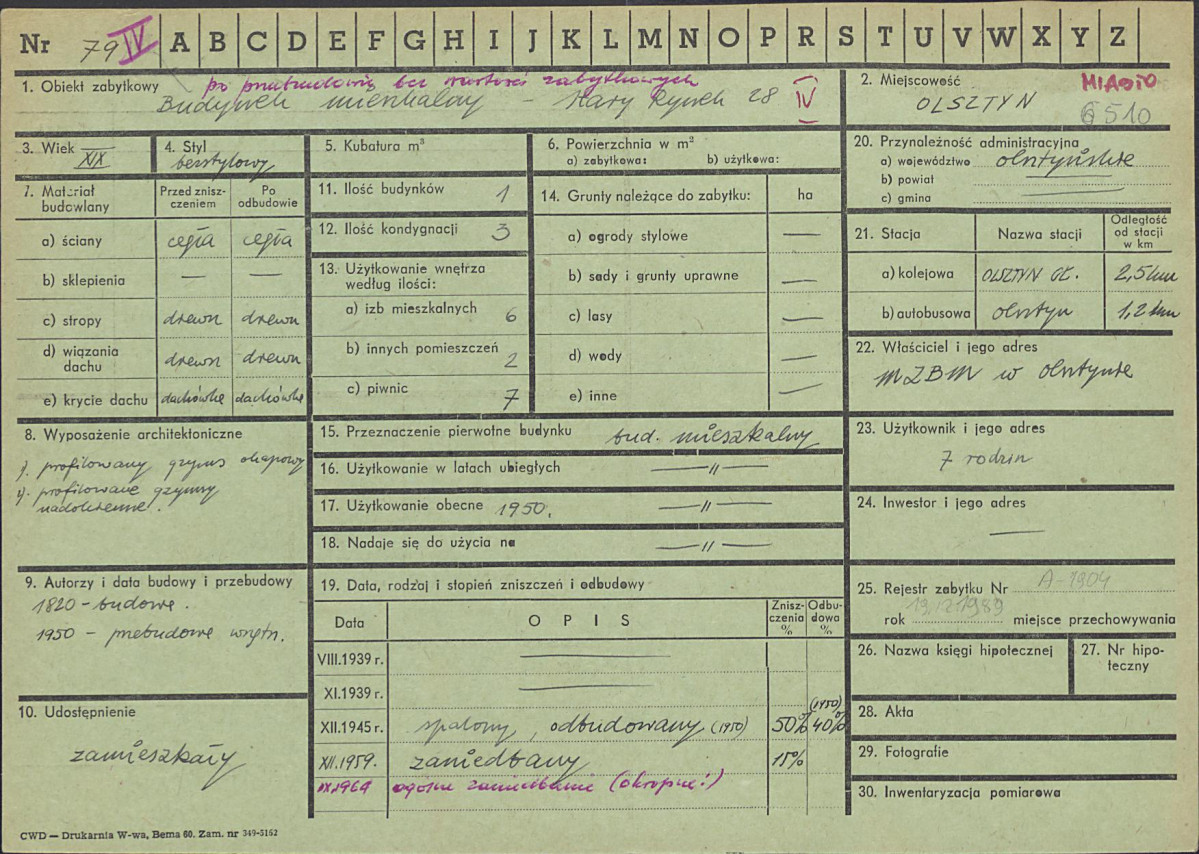 Nr 79 IV A B C D E F G H I J K L M N O P R S T U V W X Y Z
1. Obiekt zabytkowy po przebudowie bez wartości zabytkowych
Budynek mieszkalny – Stary Rynek 28 IV
2. Miejscowość MIASTO
OLSZTYN 6510
3. Wiek XIX
4. Styl
bezstylowy
5. Kubatura m³
6. Powierzchnia w m²
a) zabytkowa: b) użytkowa:
7. Materiał budowlany
Przed zniszczeniem
Po odbudowie
a) ściany cegła cegła
b) sklepienia — —
c) stropy drewn drewn
d) wiązania dachu drewn drewn
e) krycie dachu dachówka dachówka
8. Wyposażenie architektoniczne
1). profilowany gzyms okapowy
2). profilowane gzymsy
nadokienne.
9. Autorzy i data budowy i przebudowy
1820 – budowa.
1950 – przebudowa wnętrz.
10. Udostępnienie
zamieszkały
11. Ilość budynków 1
12. Ilość kondygnacji 3
13. Użytkowanie wnętrza
według ilości:
a) izb mieszkalnych 6
b) innych pomieszczeń 2
c) piwnic 7
14. Grunty należące do zabytku: ha
a) ogrody stylowe —
b) sady i grunty uprawne —
c) lasy —
d) wody —
e) inne —
15. Przeznaczenie pierwotne budynku bud. mieszkalny
16. Użytkowanie w latach ubiegłych —〃—
17. Użytkowanie obecne 1950. —〃—
18. Nadaje się do użycia na —〃—
19. Data, rodzaj i stopień zniszczeń i odbudowy
Data OPIS Zniszczenia % Odbudowa %
VIII.1939 r. —
XI.1939 r. —
XII.1945 r. spalony, odbudowany (1950) 50% 40% (1950)
XII.1959. zaniedbany 15%
IX.1969 ogólne zaniedbanie (okropne!)
20. Przynależność administracyjna
a) województwo olsztyńskie
b) powiat —
c) gmina —
21. Stacja Nazwa stacji Odległość od stacji w km
a) kolejowa OLSZTYN GŁ. 2,5 km
b) autobusowa Olsztyn 1,2 km
22. Właściciel i jego adres
MZBM w Olsztynie
23. Użytkownik i jego adres
7 rodzin
24. Inwestor i jego adres
—
25. Rejestr zabytku Nr A-1904
rok 19.12.1989 miejsce przechowywania
26. Nazwa księgi hipotecznej
27. Nr hipoteczny
28. Akta
29. Fotografie
30. Inwentaryzacja pomiarowa
CWD — Drukarnia W-wa, Bema 60. Zam. nr 349-5162